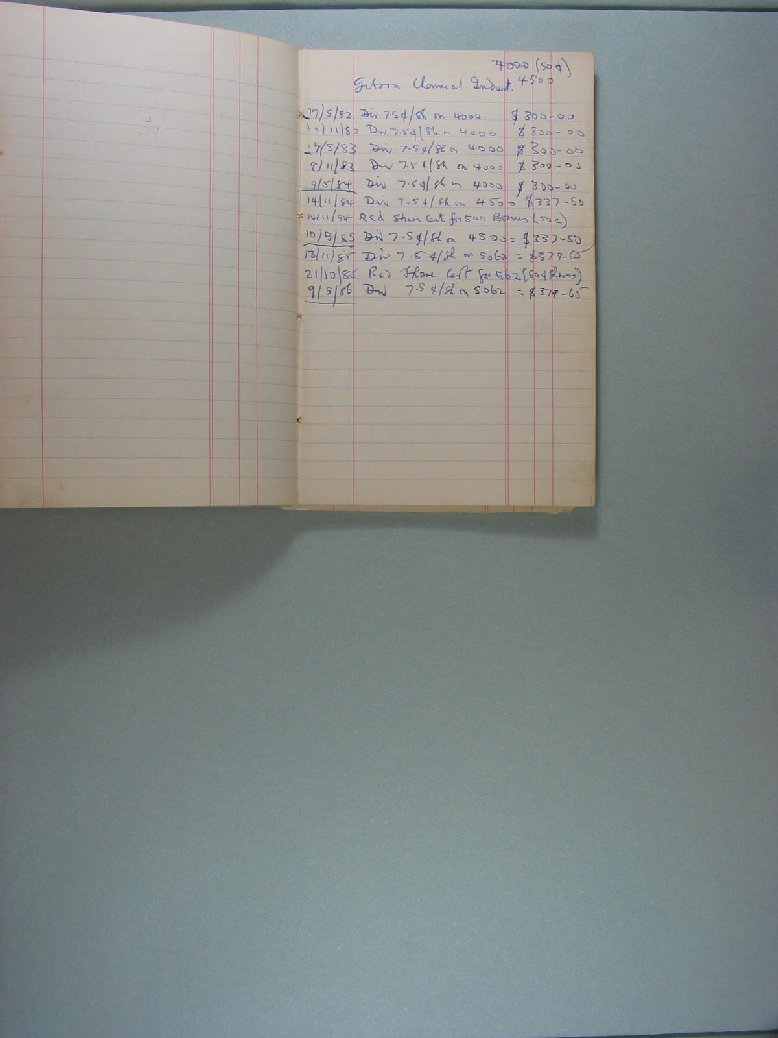 4000 (50¢)
Chemical Indust. 4500
27/5/82 Div 7.5¢/Sh on 4000 $300-00
12/11/82 Div 7.5¢/Sh on 4000 $300-00
27/5/83 Div 7.5¢/Sh on 4000 $300-00
9/11/83 Div 7.5¢/Sh on 4000 $300-00
9/5/84 Div 7.5¢/Sh on 4000 $300-00
14/11/84 Div 7.5¢/Sh on 4500 $337-50
14/11/84 Red Share Cert for 500 Bonus (50¢)
10/5/85 Div 7.5¢/Sh on 4500 = $337-50
13/11/85 Div 7.5¢/Sh on 5062 = $379-65
21/10/85 Rec Share Cert for 562 (50¢ Shares)
9/5/86 Div 7.5¢/Sh on 5062 = $379-65